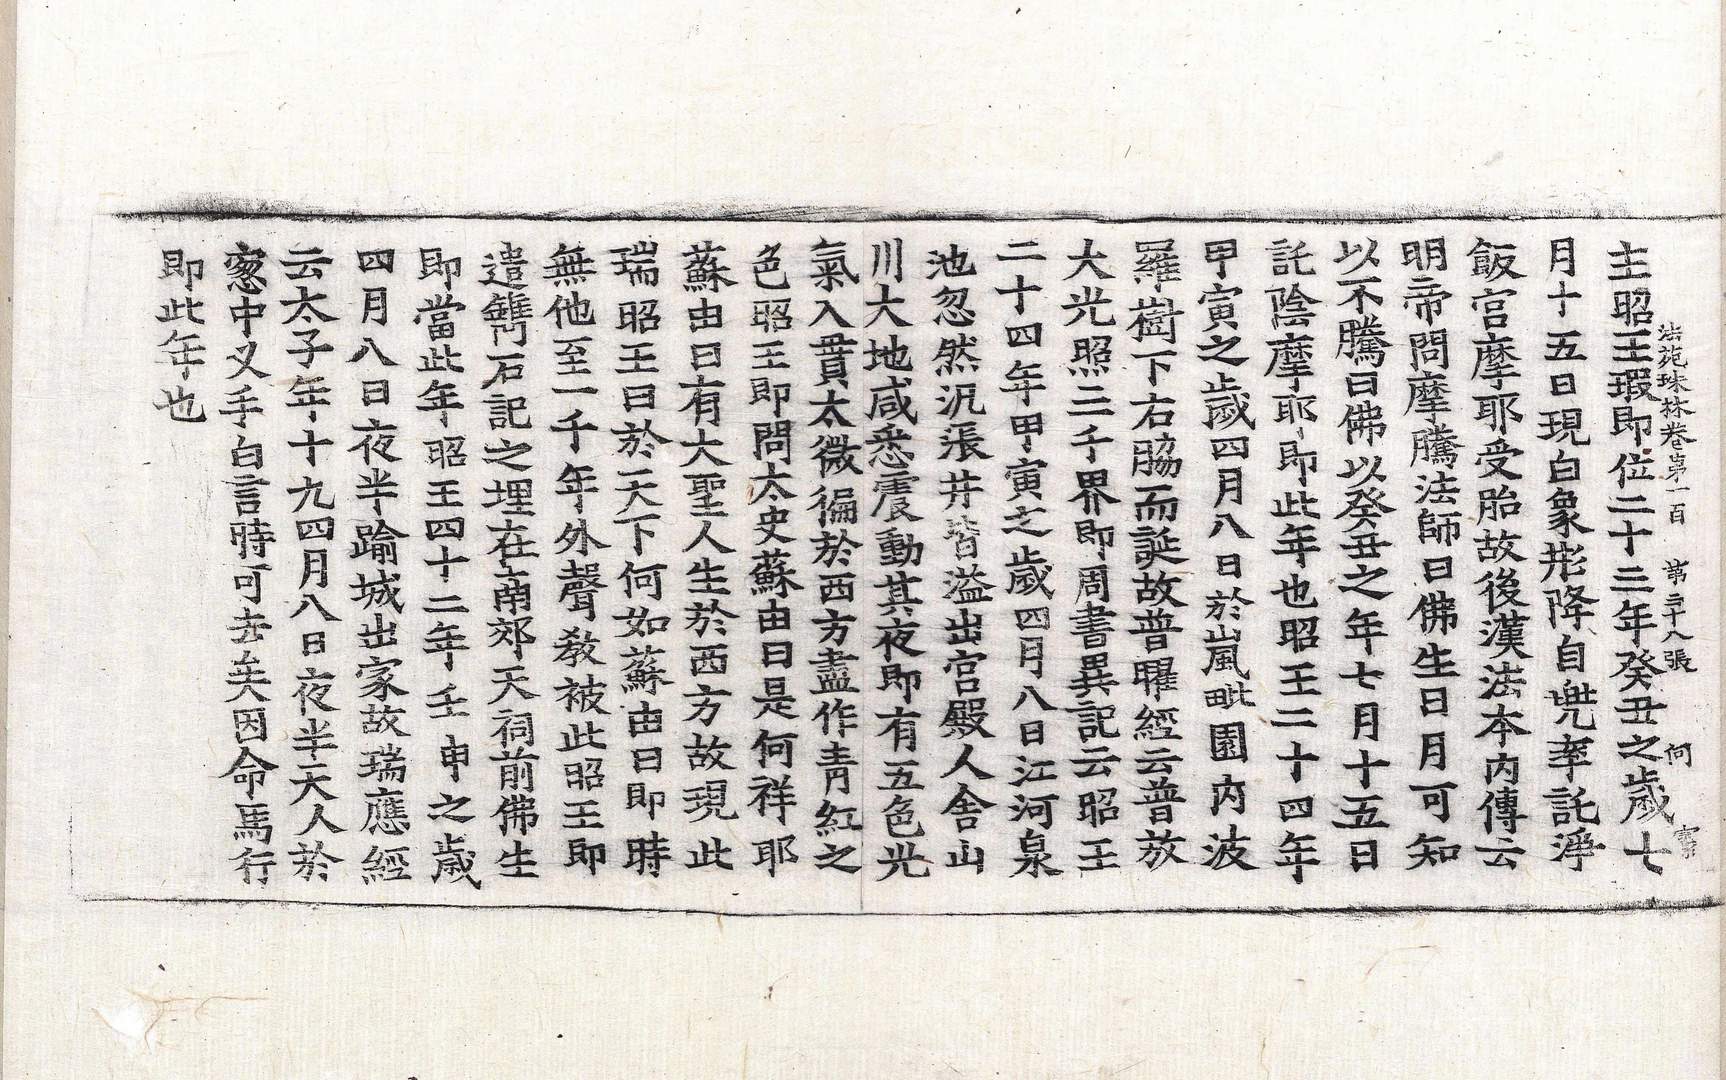 法苑珠林卷第一百 第二十八張 何
主昭王瑕即位二十三年癸丑之歲七
月十五日現白象形降自兠率託淨
飯宮摩耶受胎故後漢法本內傳云
明帝問摩騰法師曰佛生日月可知
以不騰曰佛以癸丑之年七月十五日
託陰摩耶即此年也昭王二十四年
甲寅之歲四月八日於嵐毗園內波
羅樹下右脇而誕故普曜經云普放
大光照三千界即周書異記云昭王
二十四年甲寅之歲四月八日江河泉
池忽然汎漲井皆溢出宮殿人舍山
川大地咸悉震動其夜即有五色光
氣入貫太微徧於西方盡作青紅之
色昭王即問太史蘇由曰是何祥耶
蘇由曰有大聖人生於西方故現此
瑞昭王曰於天下何如蘇由曰即時
無他至一千年外聲教被此昭王即
遣鐫石記之埋在南郊天祠前佛生
即當此年昭王四十二年壬申之歲
四月八日夜半踰城出家故瑞應經
云太子年十九四月八日夜半天人於
窓中叉手白言時可去矣因命馬行
即此年也